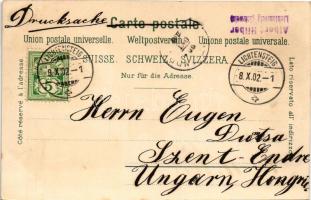 Drucksache
Carte postale.
Union postale universelle. Weltpostverein. Unione postale universale.
SUISSE. SCHWEIZ. SVIZZERA.
Nur für die Adresse.
Côté réservé à l'adresse.
Lato riservato all'indirizzo.
LICHTENSTEIG
8.X.02-1
LICHTENSTEIG
8.X.02-1
5
Herrn Eugen
Szent-Endre
Ungarn, Hongrie